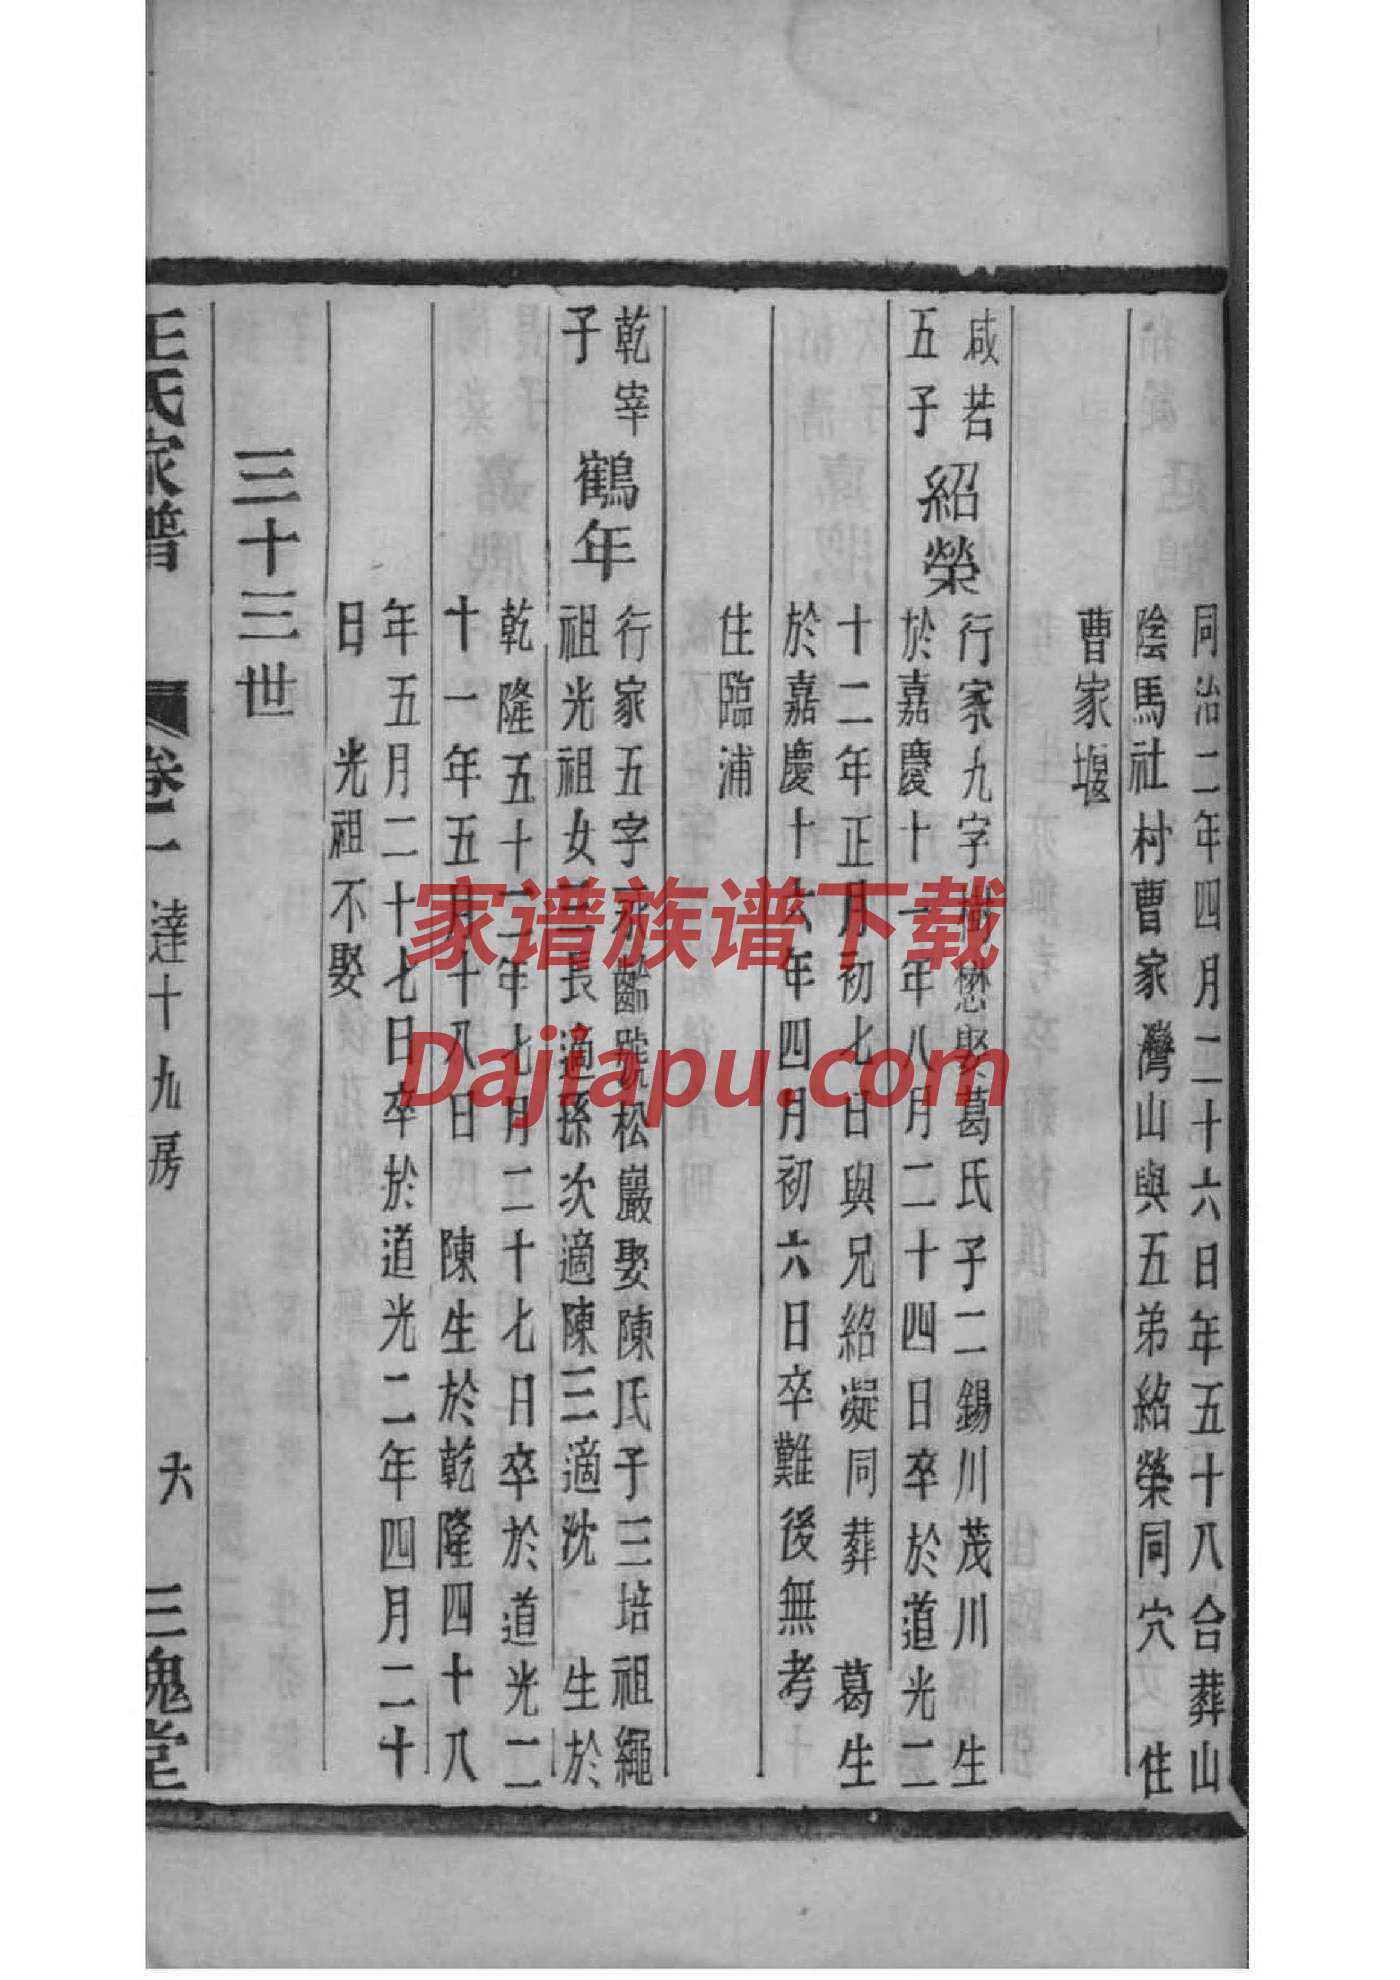 同治二年四月二十六日年五十八合葬山
陰馬社村曹家灣山與五弟紹榮同穴 住
曹家堰
咸若
五子
紹榮
行家九字樹懋娶葛氏子二錫川茂川 生
於嘉慶十一年八月二十四日卒於道光二
十二年正月初七日與兄紹凝同葬 葛生
於嘉慶十六年四月初六日卒難後無考
住臨浦
乾宰
子
鶴年
行家五字永齡號松巖娶陳氏子三培祖繩
祖光祖女三長適孫次適陳三適沈 生於
乾隆五十二年七月二十七日卒於道光二
十一年五月十八日 陳生於乾隆四十八
年五月二十七日卒於道光二年四月二十
日 光祖不娶
三十三世
王氏家譜
卷一
達十九房
六
三槐堂
家谱族谱下载
Dajiapu.com